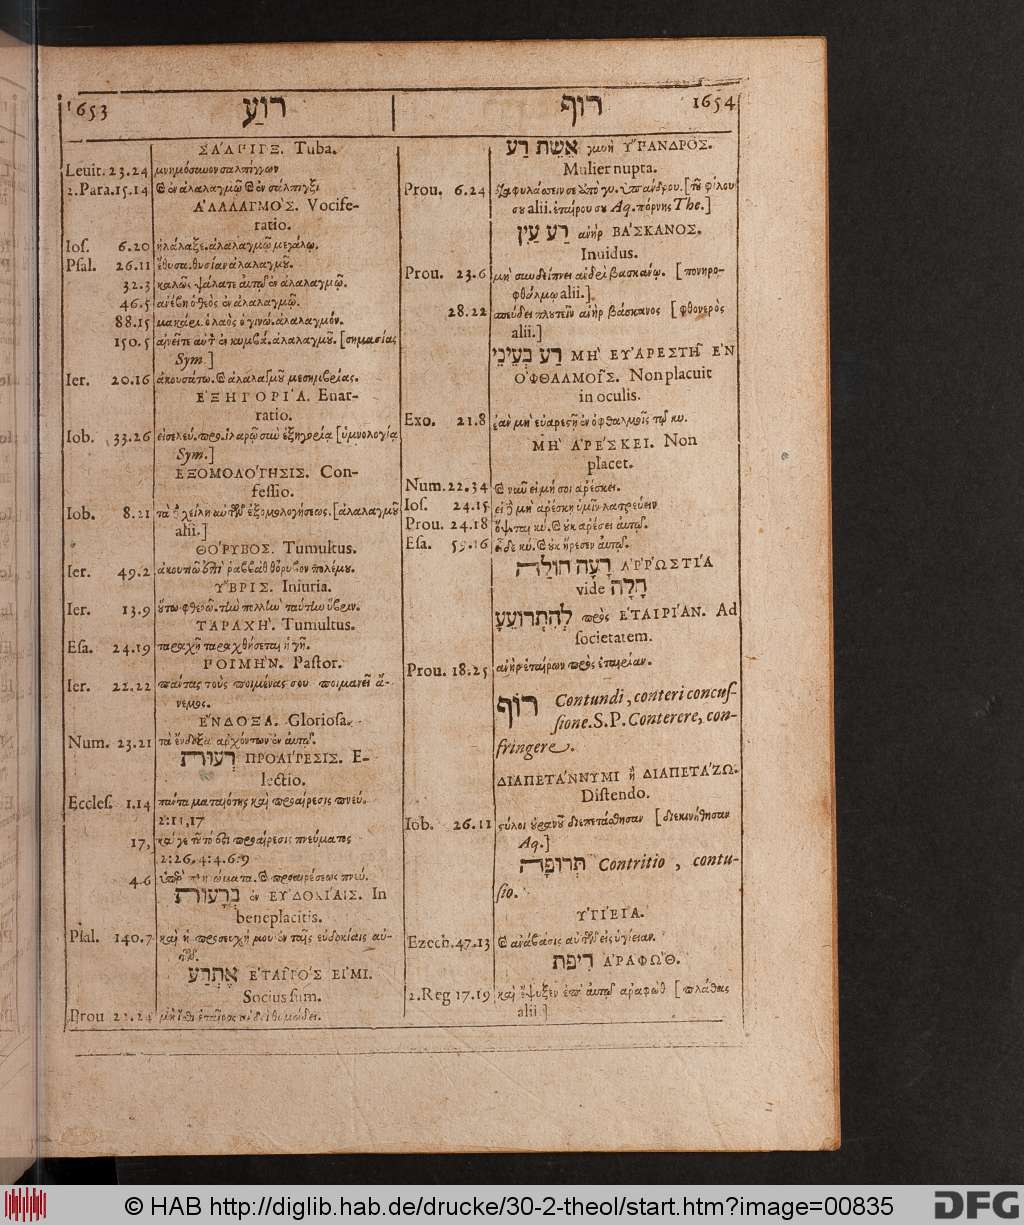 1653 רוּעַ
ΣΑ'ΛΠΙΓΞ. Tuba.
Leuit. 23.24 μνημόσυνον σαλπίγγων
2.Para. 15.14 καὶ ἐν ἀλαλαγμῷ καὶ ἐν σάλπιγξι
ἈΛΑΛΑΓΜΟ'Σ. Vocife-
ratio.
Ios. 6.20 ἠλάλαξε. ἀλαλαγμῷ μεγάλῳ.
Psal. 26.11 ἔθυσα. θυσίαν ἀλαλαγμοῦ.
32.3 καλῶς ψάλατε αὐτῷ ἐν ἀλαλαγμῷ.
46.5 ἀνέβη ὁ θεὸς ἐν ἀλαλαγμῷ.
88.15 μακάρι. ὁ λαὸς ὁ γινώ. ἀλαλαγμόν.
150.5 αἰνεῖτε αὐτ ἐν κυμβά. ἀλαλαγμοῦ. [σημασίας
Sym.]
Ier. 20.16 ἀκουσάτω. καὶ ἀλαλαγμοῦ μεσημβρίας.
ἘΞΗΓΟΡΙ'Α. Enar-
ratio.
Iob. 33.26 εἰσελεύ. προ. ἱλαρῷ σὺν ἐξηγορίᾳ [ὑμνολογίᾳ
Sym.]
ἘΞΟΜΟΛΟ'ΓΗΣΙΣ. Con-
fessio.
Iob. 8.21 τὰ δὲ χείλη αὐτῶν ἐξομολογήσεως. [ἀλαλαγμοῦ
alii.]
ΘΟ'ΡΥΒΟΣ. Tumultus.
Ier. 49.2 ἀκουτιῶ ἐπὶ ῥαββὰθ θόρυβον πολέμου.
Υ῞ΒΡΙΣ. Iniuria.
Ier. 13.9 οὕτω φθερῶ. τὴν πολλὴν ταύτην ὕβριν.
ΤΑΡΑΧΗ'. Tumultus.
Esa. 24.19 ταραχῇ ταραχθήσεται ἡ γῆ.
ΠΟΙΜΗ'Ν. Pastor.
Ier. 22.22 πάντας τοὺς ποιμένας σου ποιμανεῖ ἄ-
νεμος.
ἜΝΔΟΞΑ. Gloriosa.
Num. 23.21 τὰ ἔνδοξα ἀρχόντων ἐν αὐτῷ.
רְעוּת ΠΡΟΑΙ'ΡΕΣΙΣ. E-
lectio.
Eccles. 1.14 πάντα ματαιότης καὶ προαίρεσις πνεύ.
2:11,17
17, καί γε τοῦτό ἐστι προαίρεσις πνεύματος
2:26, 4:4.6:9
4.6 ὑπὲρ καὶ προαιρέσεως πνεύ.
בִּרְעוּת ἐν ΕΥ'ΔΟΚΙ'ΑΙΣ. In
beneplacitis.
Psal. 140.7 καὶ ἡ προσευχή μου ἐν ταῖς εὐδοκίαις αὐ-
τῶν.
אֶתְרַע ἙΤΑΙ͂ΡΟ'Σ ΕἸΜΙ.
Socius sum.
Prou 22.24 μὴ ἴσθι ἑταῖρος ἀνδρὶ θυμώδει.
רוּף 1654
אֵשֶׁת רַע γυνὴ Υ῞ΠΑΝΔΡΟΣ.
Mulier nupta.
Prou. 6.24 διαφυλάσσειν σε ἀπὸ γυ. ὑπάνδρου. [τοῦ φίλου
σου alii. ἑταίρου σου Aq. πόρνης The.]
רַע עַיִן ἀνὴρ ΒΑ'ΣΚΑΝΟΣ.
Inuidus.
Prou. 23.6 μὴ συνδείπνει ἀνδρὶ βασκάνῳ. [πονηρο-
φθάλμῳ alii.]
28.22 σπεύδει πλουτεῖν ἀνὴρ βάσκανος [φθονερὸς
alii.]
רַע בְּעֵינֵי ΜΗ' ΕΥ'ΑΡΕΣΤΗ͂ ἘΝ
ὈΦΘΑΛΜΟΙ͂Σ. Non placuit
in oculis.
Exo. 21.8 ἐὰν μὴ εὐαρεστῇ ἐν ὀφθαλμοῖς τῷ κυ.
ΜΗ' ἈΡΕ'ΣΚΕΙ. Non
placet.
Num. 22.34 καὶ νῦν εἰ μή σοι ἀρέσκει.
Ios. 24.15 εἰ δὲ μὴ ἀρέσκῃ ὑμῖν λατρεύειν
Prou. 24.18 ὄψεται κύ. καὶ οὐκ ἀρέσει αὐτῷ.
Esa. 59.16 εἶδε κύ. καὶ οὐκ ἤρεσεν αὐτῷ.
רָעָה חוֹלָה ἈΡ'ΡΩΣΤΙ'Α
vide חָלָה
לְהִתְרוֹעֵעַ πρὸς ἙΤΑΙΡΙ'ΑΝ. Ad
societatem.
Prou. 18.25 ἀνὴρ ἑταίρων πρὸς ἑταιρίαν.
רוּף Contundi, conteri concus-
sione. S.P. Conterere, con-
fringere.
ΔΙΑΠΕΤΑ'ΝΝΥΜΙ ἢ ΔΙΑΠΕΤΑ'ΖΩ.
Distendo.
Iob. 26.11 στύλοι οὐρανοῦ διεπετάσθησαν [διεκινήθησαν
Aq.]
תְּרוּפָה Contritio, contu-
sio.
Υ῾ΓΙ'ΕΙΑ.
Ezech. 47.13 καὶ ἀνάβασις αὐτῶν εἰς ὑγίειαν.
רִיפת ἈΡΑΦΩ'Θ.
2.Reg 17.19 καὶ ἔψυξεν ἐπ' αὐτῷ ἀραφὼθ [παλάθας
alii.]
© HAB http://diglib.hab.de/drucke/30-2-theol/start.htm?image=00835
DFG